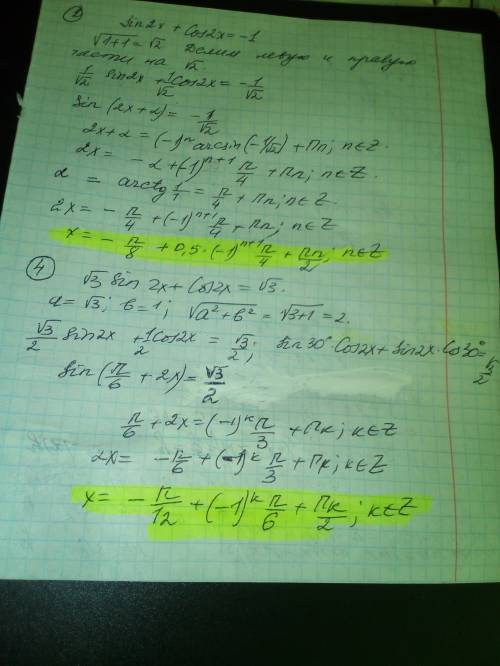 ② sin2x + Cos2x = -1
√1+1 = √2 Делим левую и правую
части на √2
1/√2 sin2x + 1/√2 Cos2x = - 1/√2
Sin (2x+α) = - 1/√2
2x+α = (-1)ⁿ arcsin(-1/√2) + Пn; n∈Z.
2x = - α + (-1)ⁿ⁺¹ П/4 + Пn; n∈Z.
α = arctg 1/1 = П/4 + Пn; n∈Z.
2x = - П/4 + (-1)ⁿ⁺¹ П/4 + Пn; n∈Z
x = - П/8 + 0,5·(-1)ⁿ⁺¹ П/4 + Пn/2; n∈Z
④ √3 Sin 2x + Cos2x = √3.
a = √3; b = 1; √a²+b² = √3+1 = 2.
√3/2 Sin2x + 1/2 Cos2x = √3/2; Sin30°·Cos2x + Sin2x·Cos30° = √3/2
Sin(П/6 + 2x) = √3/2
П/6 + 2x = (-1)ᵏ П/3 + Пk; k∈Z
2x = - П/6 + (-1)ᵏ П/3 + Пk; k∈Z
x = - П/12 + (-1)ᵏ П/6 + Пk/2; k∈Z